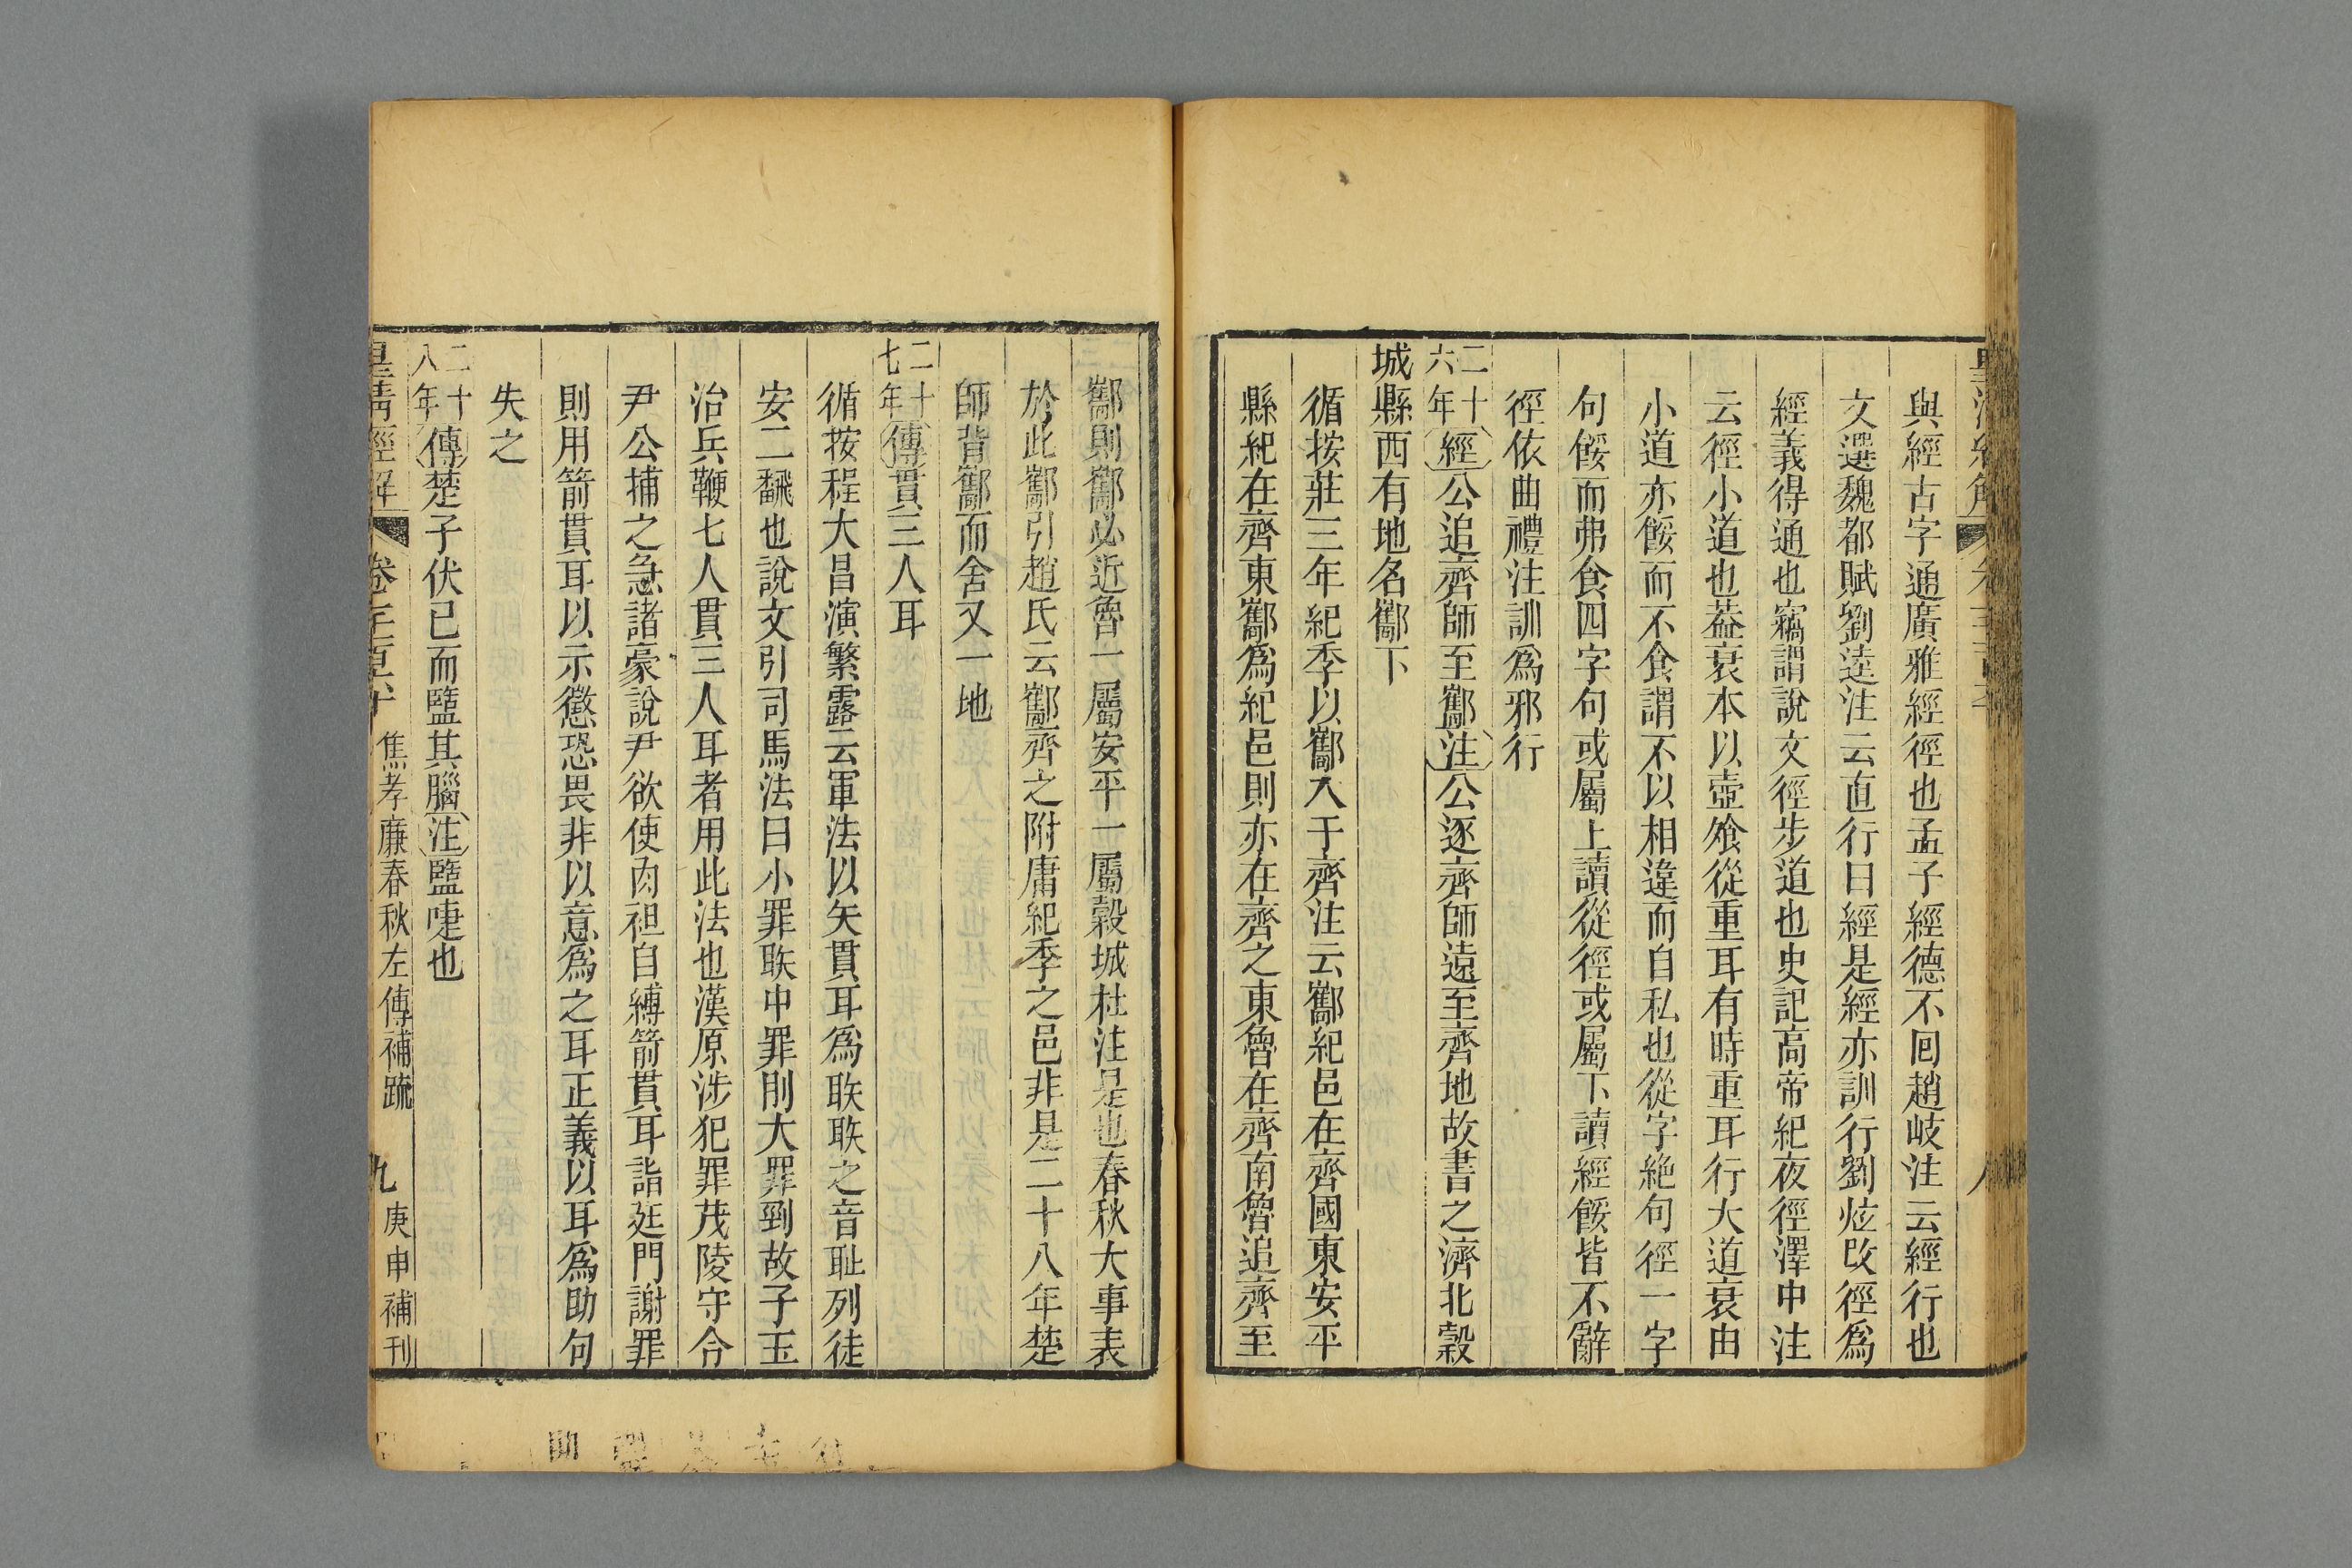 與經古字通廣雅經徑也孟子經德不回趙岐注云經行也
文選魏都賦劉逵注云直行曰經是經亦訓行劉炫改徑爲
經義得通也竊謂說文徑步道也史記高帝紀夜徑澤中注
云徑小道也葢衰本以壺飧從重耳有時重耳行大道衰由
小道亦餒而不食謂不以相違而自私也從字絶句徑一字
句餒而弗食四字句或屬上讀從徑或屬下讀經餒皆不辭
徑依曲禮注訓爲邪行
二十六年經公追齊師至酅注公逐齊師遠至齊地故書之濟北穀
城縣西有地名酅下
循按莊三年紀季以酅入于齊注云酅紀邑在齊國東安平
縣紀在齊東酅爲紀邑則亦在齊之東魯在齊南魯追齊至
酅則酅必近魯一屬安平一屬穀城杜注是也春秋大事表
於此酅引趙氏云酅齊之附庸紀季之邑非是二十八年楚
師背酅而舍又一地
二十七年傳貫三人耳
循按程大昌演繁露云軍法以矢貫耳爲聅聅之音耻列徒
安二翻也說文引司馬法曰小罪聅中罪刖大罪剄故子玉
治兵鞭七人貫三人耳者用此法也漢原涉犯罪茂陵守令
尹公捕之急諸豪說尹欲使肉袒自縛箭貫耳詣廷門謝罪
則用箭貫耳以示懲恐畏非以意爲之耳正義以耳爲助句
失之
二十八年傳楚子伏已而盬其腦注盬啑也
皇清經解 焦孝廉春秋左傳補疏 九 庚申補刊